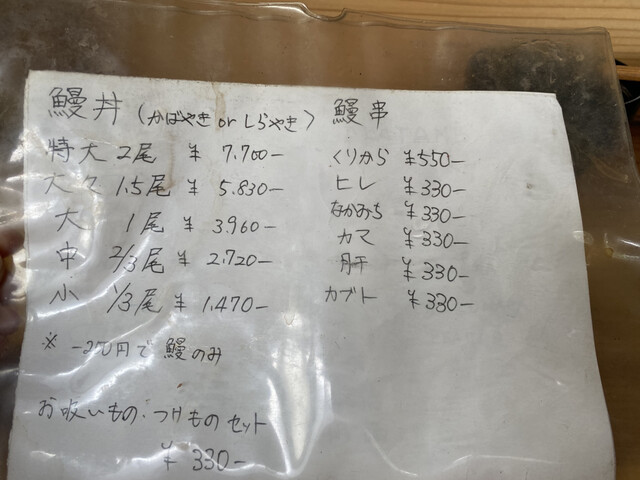 鰻丼 (かばやき or しらやき)
特大 2尾 ¥ 7.700-
大々 1.5尾 ¥ 5.830-
大 1尾 ¥ 3.960-
中 2/3尾 ¥ 2.720-
小 1/3尾 ¥ 1.470-
※ -250円で 鰻のみ
お吸いもの・つけもの セット
¥ 330-
鰻串
くりから ¥550-
ヒレ ¥330-
なかみち ¥330-
カマ ¥330-
肝 ¥330-
カブト ¥330-